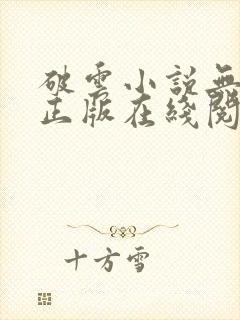 破雲小說無
正版在綫閱
十方雪